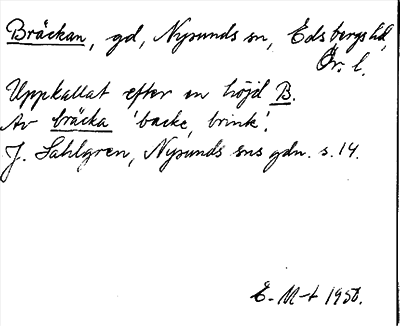 Bräckan, gd, Nysunds sn, Edsbergs hd,
Ör. l.
Uppkallat efter en höjd B.
Av bräcka 'backe, brink'.
J. Sahlgren, Nysunds sns gdn. s. 14.
E. M-t 1950.